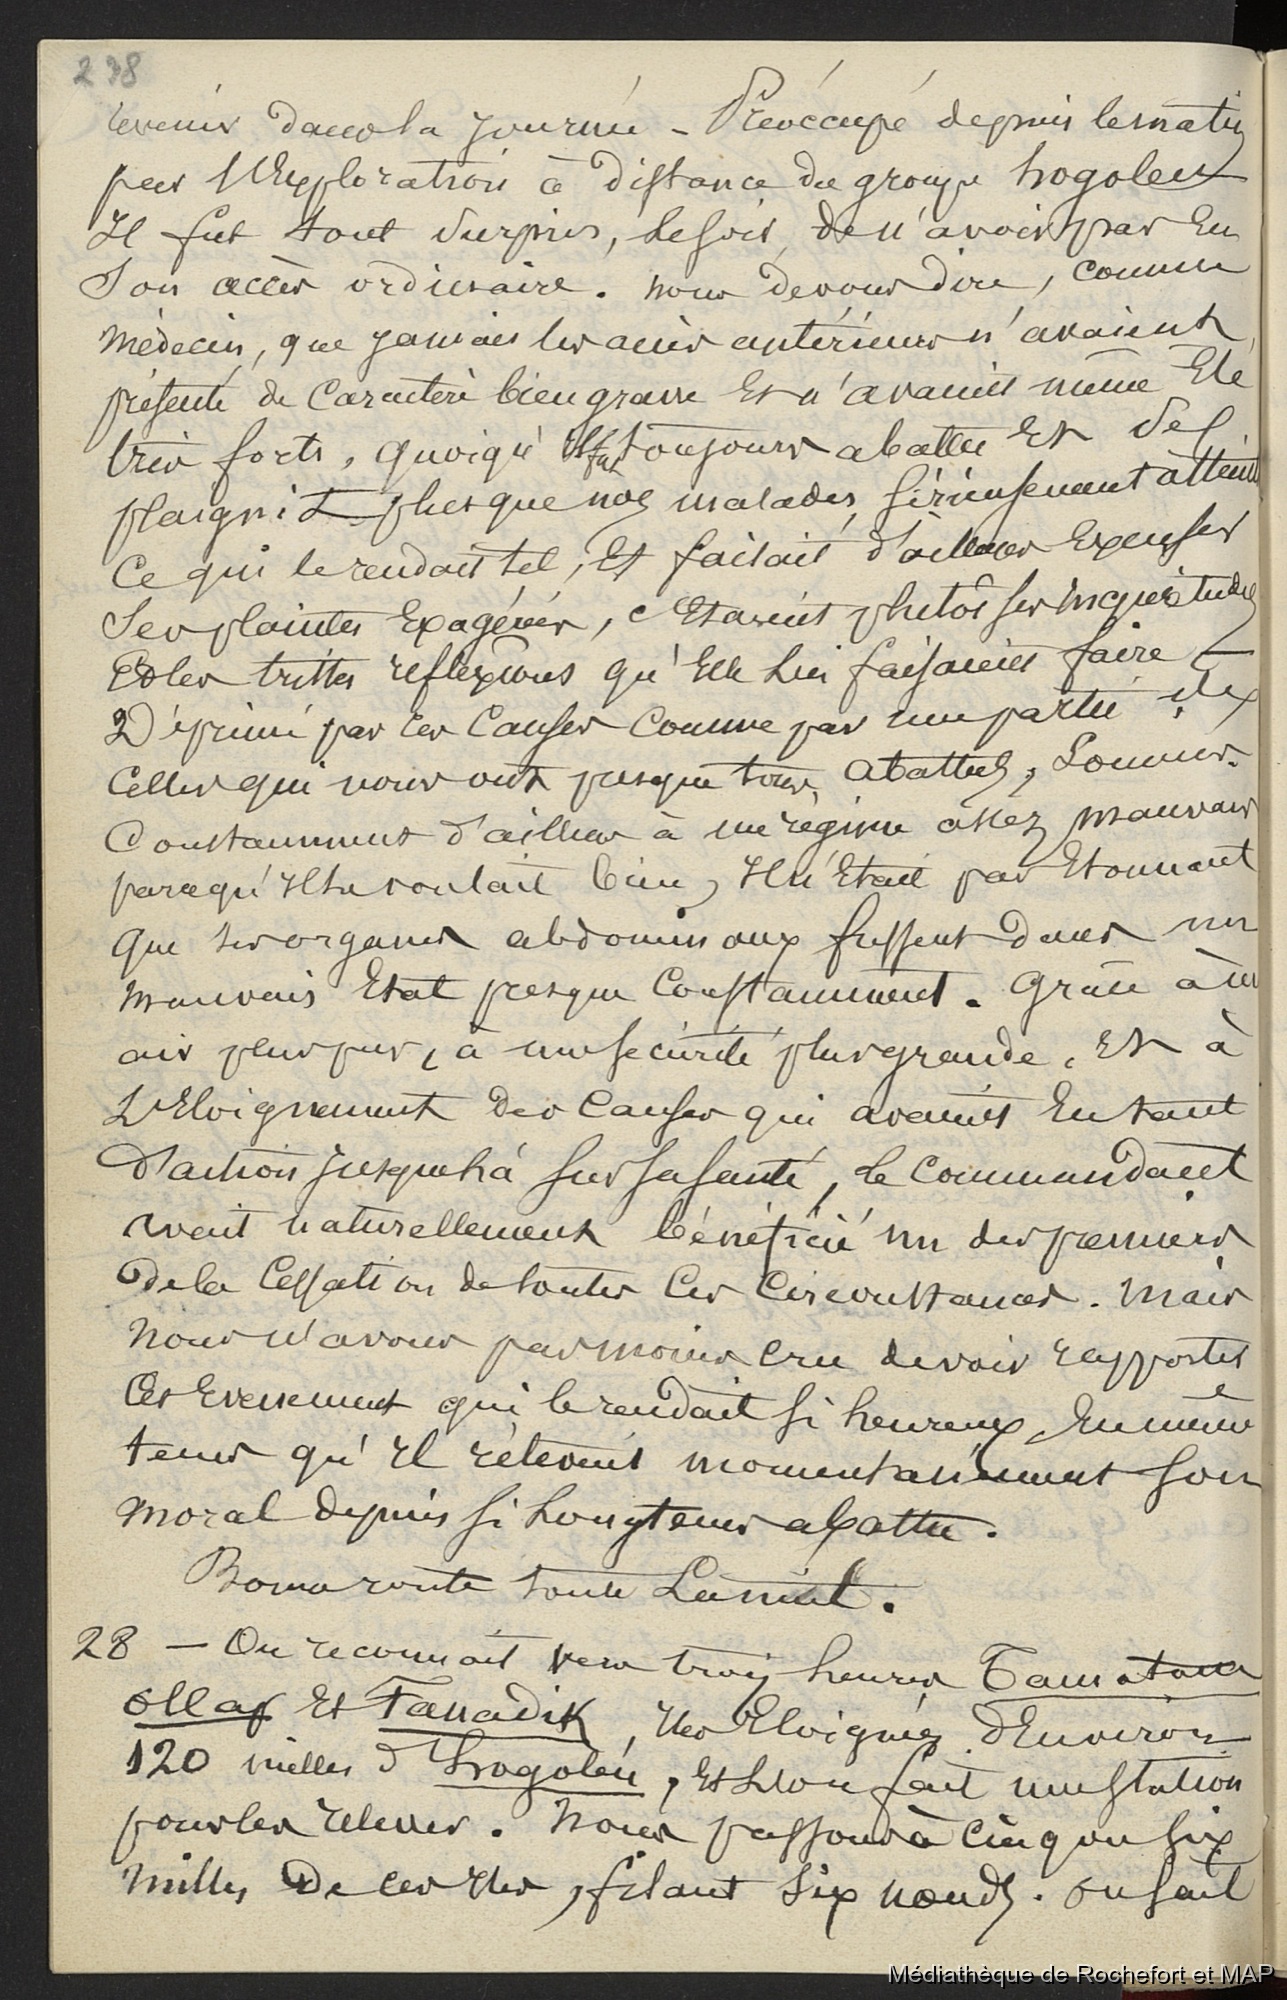 238
revenir dans la journée - Préoccupé depuis le matin
par l'Exploration à distance du groupe hogoleu
Il fut tout surpris, le soir de n'avoir pas Eu
Son accès ordinaire. nous devons dire, comme
médecin, que jamais les accès antérieurs n'avaient
présenté de Caractère bien grave Et n'avaient même Eté
très forts, quoiqu'il fut toujours abattu Et se
plaignit plus que nos malades sérieusement atteints
Ce qui le rendait tel, Et faisait d'ailleurs Excuser
Ses plaintes Exagérées, c'Etaient plutôt ses inquiétudes
Et les tristes reflexions qu'Elle lui faisaient faire -
Déprimé par ces Causes Comme par une partie de
Celles qui nous ont presque tous abattus, Soumis
Constamment d'ailleurs à un régime assez mauvais
parce qu'Il le voulait bien, Il n'Etait pas Etonnant
que ses organes abdominaux fussent dans un
mauvais Etat presque Constamment. Grâce à un
air plus pur, à une sécurité plus grande, Et à
L'Eloignement des Causes qui avaient Eu tant
d'action jusque là sur sa santé, le Commandant
avait naturellement bénéficié un des premiers
de la Cessation de toutes Ces Circonstances. Mais
Nous n'avons pas moins Cru devoir rapporter
Cet Evenement qui le rendait si heureux, En même
tems qu'Il relevait momentanément son
moral depuis si longtems abattu.
Bonne route toute La nuit.
28 - On reconnait vers trois heures Tamatam
Ollap Et Fanadik, Iles Eloignées d'Environ
120 milles d'hogoleu, Et L'on fait une station
pour les relever. Nous passons à Cinq ou Six
milles de ces Iles, filant Six nœuds. on fait
Médiathèque de Rochefort et MAP